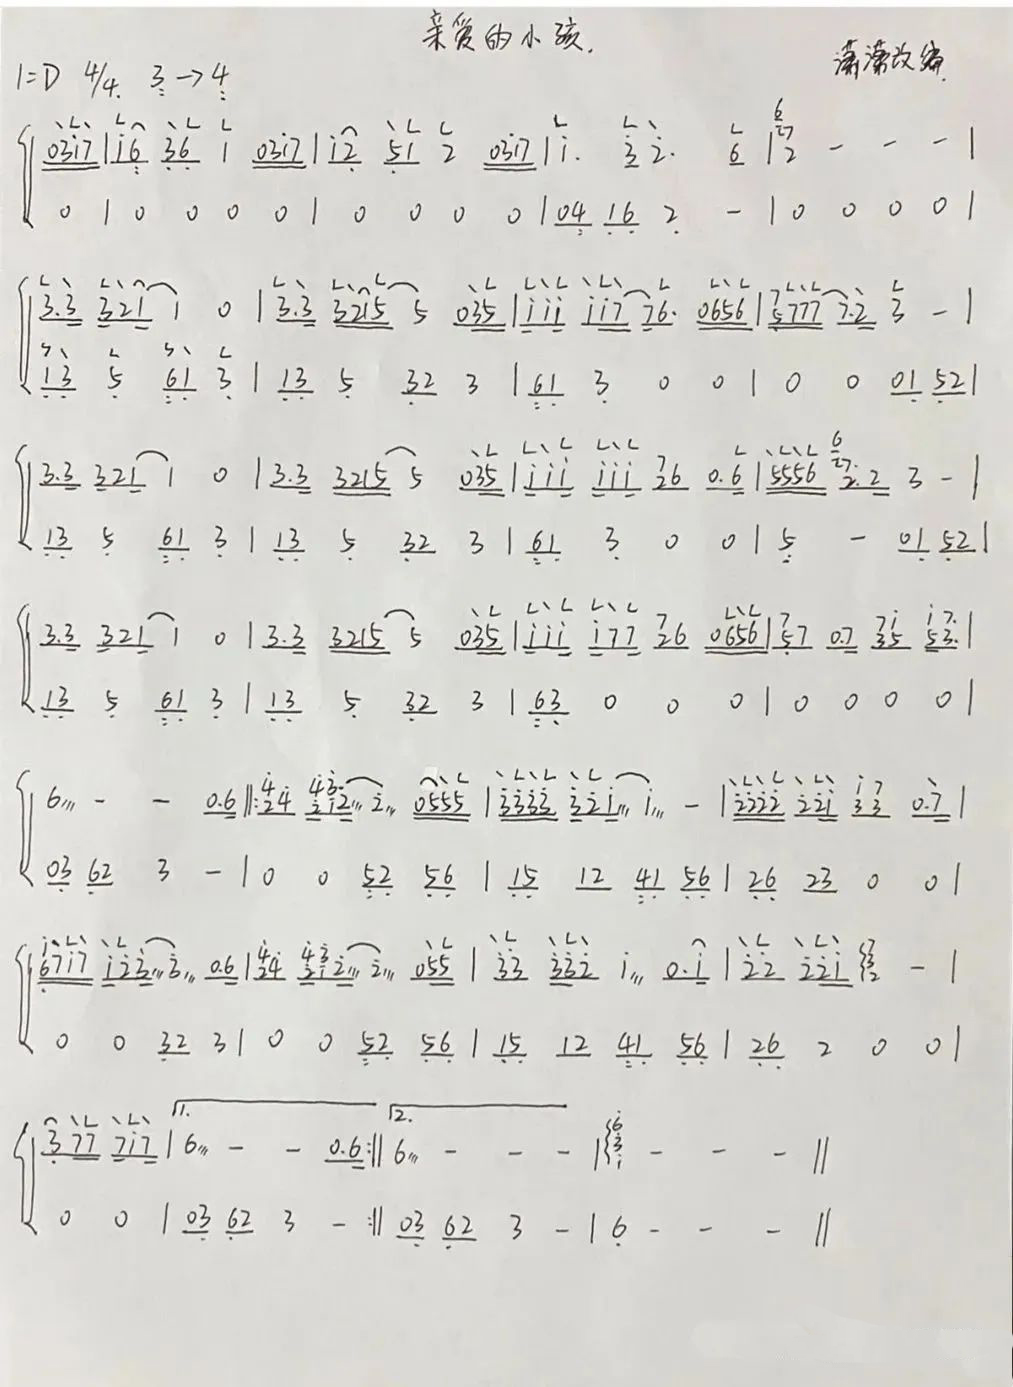 亲爱的小孩.
潇潇改编
1=D 4/4. 3→4
0317 | 16 36 1 0317 | 12 51 2 0317 | 1. 3 2. 6 | 2 - - - |
0 | 0 0 0 0 | 0 0 0 0 | 04 16 2 - | 0 0 0 0 |
3.3 321 1 0 | 3.3 3215 5 035 | 111 117 76. 0656 | 5777 7.2 3 - |
13 5 61 3 | 13 5 32 3 | 61 3 0 0 | 0 0 01 52 |
3.3 321 1 0 | 3.3 3215 5 035 | 111 111 26 0.6 | 5556 2.2 3 - |
13 5 61 3 | 13 5 32 3 | 61 3 0 0 | 5 - 01 52 |
3.3 321 1 0 | 3.3 3215 5 035 | 111 177 26 0656 | 57 0.7 35 53. |
13 5 61 3 | 13 5 32 3 | 63 0 0 0 | 0 0 0 0 |
6 - - 0.6 ‖: 24 212 2 0555 | 3333 321 1 - | 2222 221 33 0.7 |
03 62 3 - | 0 0 52 56 | 15 12 41 56 | 26 23 0 0 |
6717 123 3 0.6 | 24 212 2 055 | 33 332 1 0.1 | 22 221 2 - |
0 0 32 3 | 0 0 52 56 | 15 12 41 56 | 26 2 0 0 |
3 77 717 | 1. 6 - - 0.6 :‖ 2. 6 - - - | 631 - - - ‖
0 0 | 03 62 3 - :‖ 03 62 3 - | 6 - - - ‖